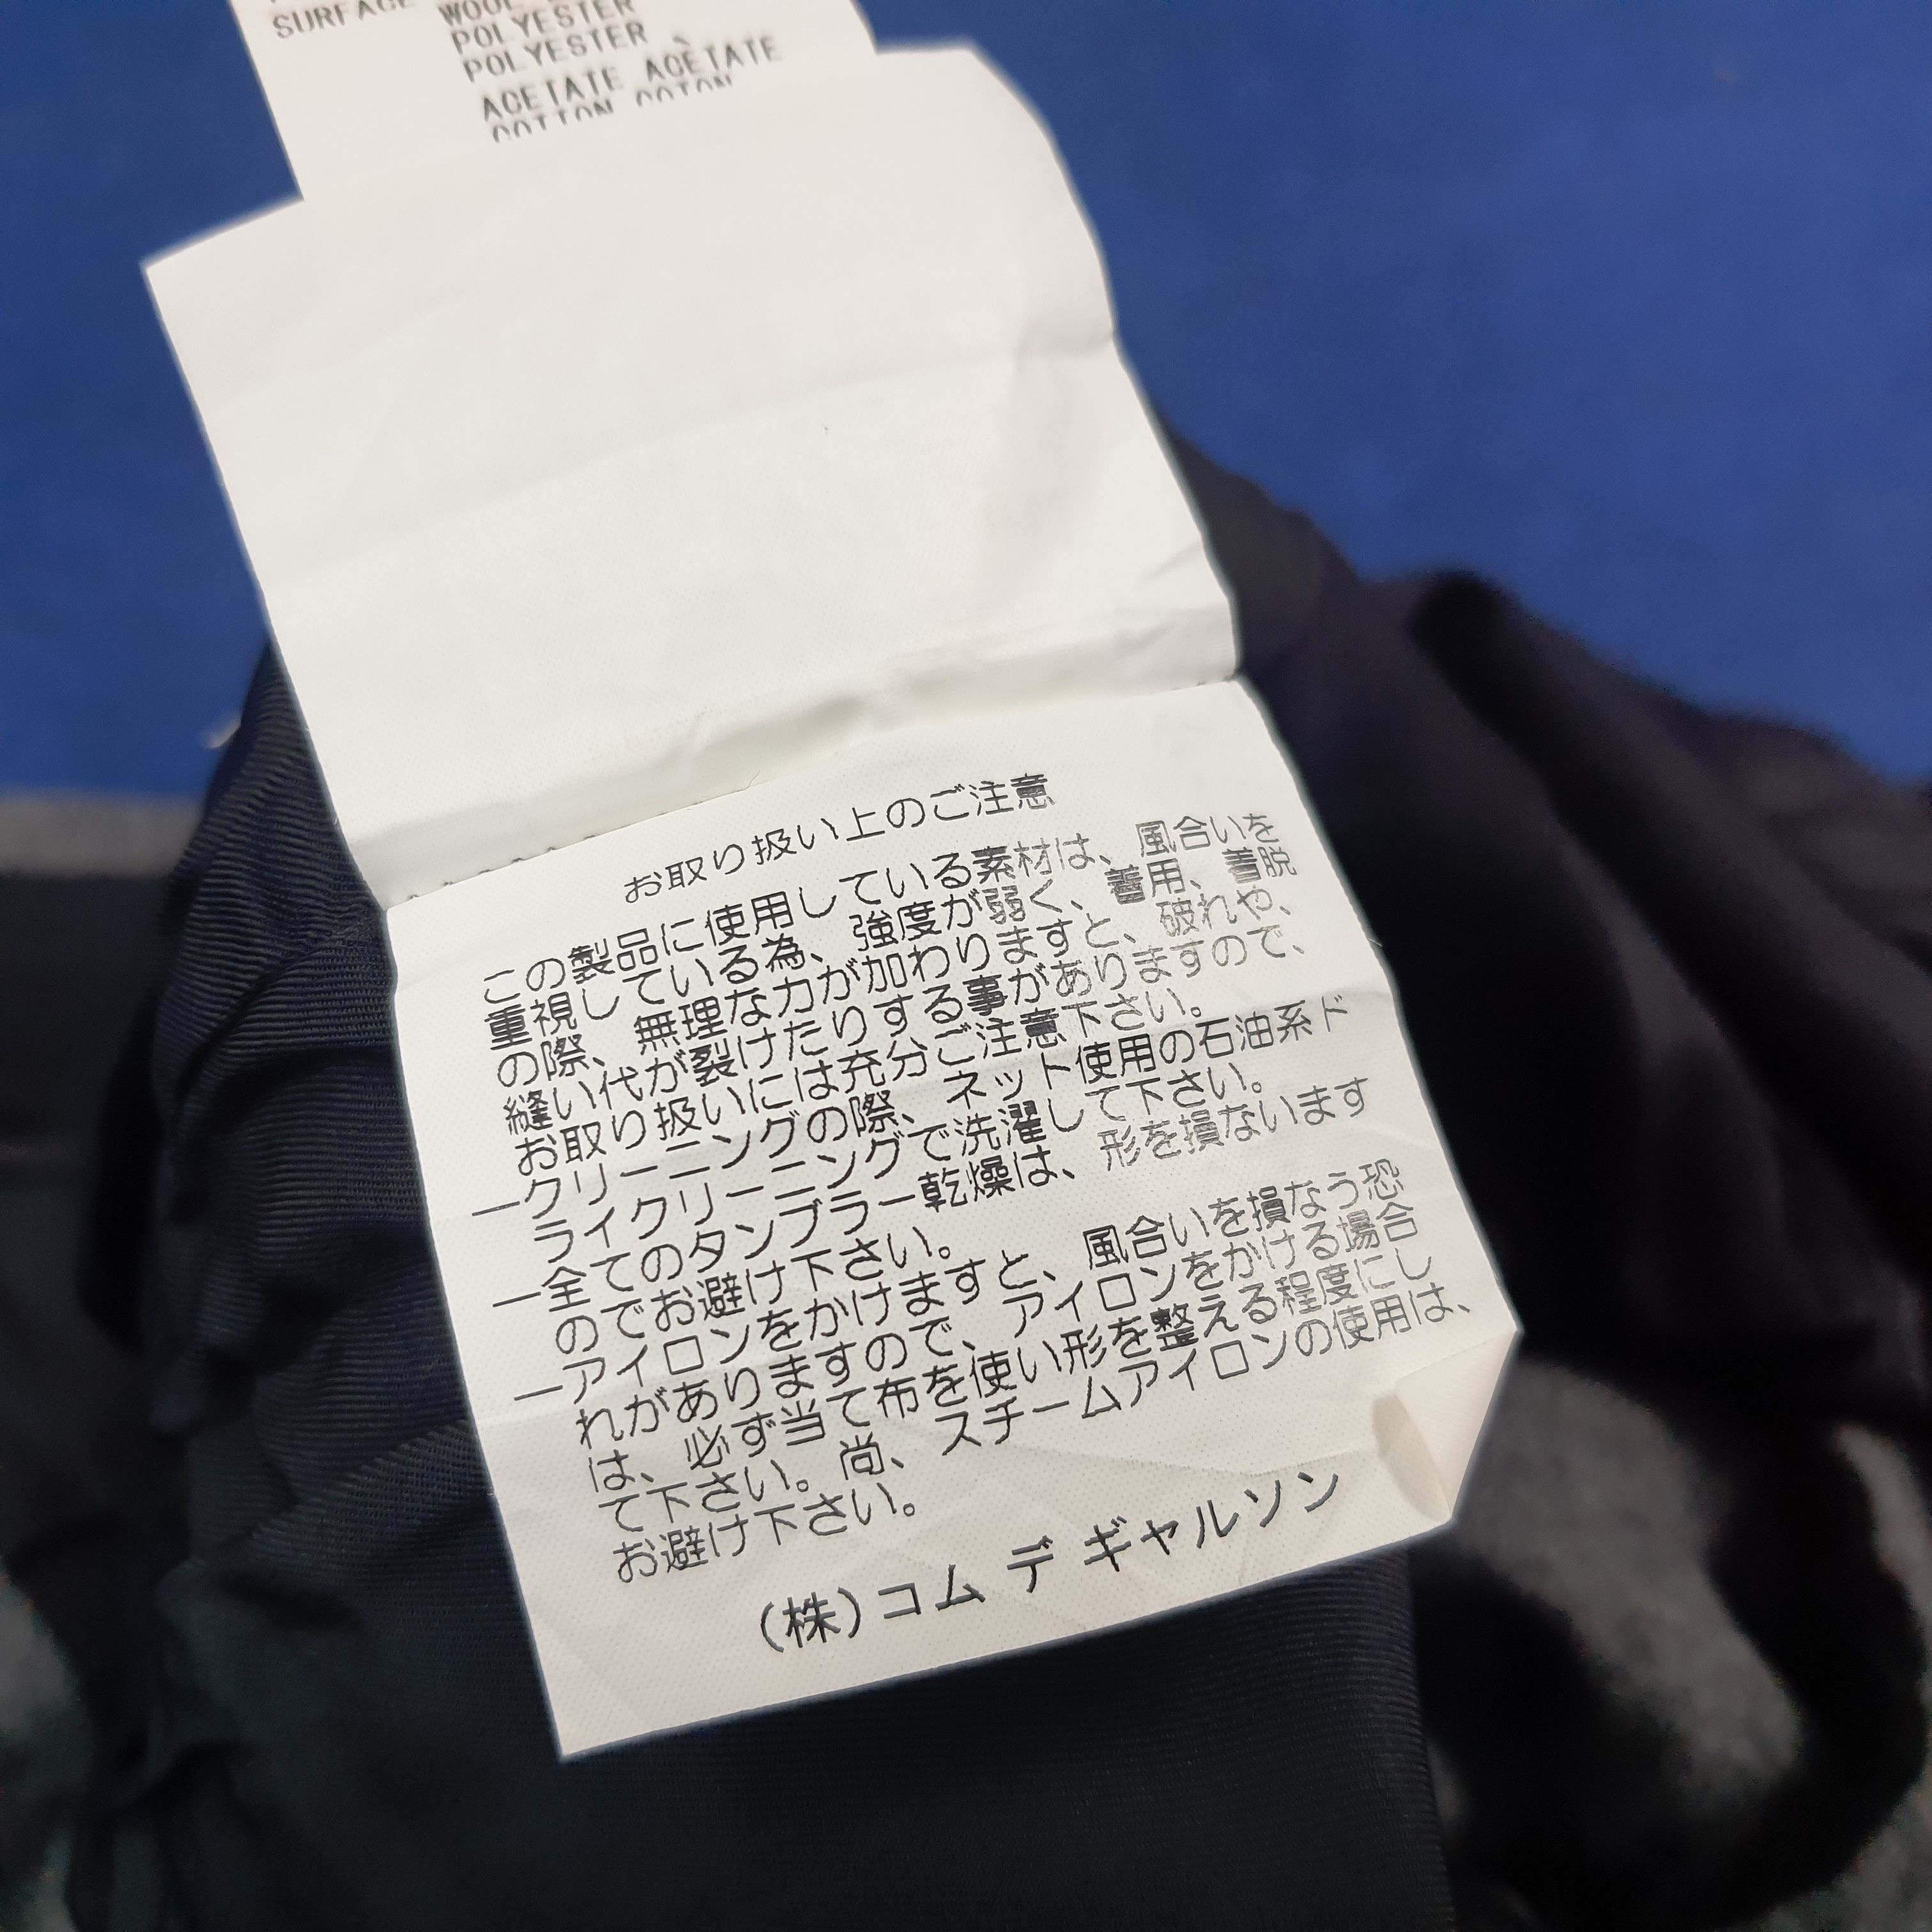 SURFACE
WOOL
POLYESTER
POLYESTER
ACETATE ACÈTATE
COTTON COTON
お取り扱い上のご注意
この製品に使用している素材は、風合いを
重視している為、強度が弱く、着用、着脱
の際、無理な力が加わりますと、破れや、
縫い代が裂けたりする事がありますので、
お取り扱いには充分ご注意下さい。
―クリーニングの際、ネット使用の石油系ド
ライクリーニングで洗濯して下さい。
―全てのタンブラー乾燥は、形を損ないます
のでお避け下さい。
―アイロンをかけますと、風合いを損なう恐
れがありますので、アイロンをかける場合
は、必ず当て布を使い形を整える程度にし
て下さい。尚、スチームアイロンの使用は、
お避け下さい。
(株)コム デ ギャルソン